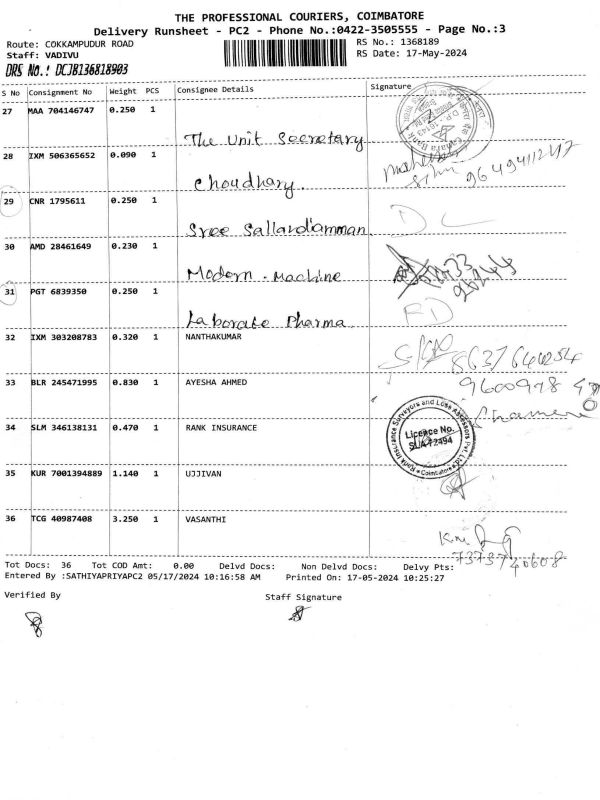 THE PROFESSIONAL COURIERS, COIMBATORE
Delivery Runsheet - PC2 - Phone No.:0422-3505555 - Page No.:3
Route: COKKAMPUDUR ROAD
RS No.: 1368189
Staff: VADIVU
RS Date: 17-May-2024
DRS No.: DCJB136818903
S No Consignment No Weight PCS Consignee Details Signature
27 MAA 704146747 0.250 1
The Unit Secretary
28 IXM 506365652 0.090 1
Choudhary.
29 CNR 1795611 0.250 1 DL
Sree Sallardiamman
30 AMD 28461649 0.230 1
Modern Machine
31 PGT 6839350 0.250 1 RD
Laborate Pharma
32 IXM 303208783 0.320 1 NANTHAKUMAR
33 BLR 245471995 0.830 1 AYESHA AHMED
34 SLM 346138131 0.470 1 RANK INSURANCE
Rank Insurance Surveyors and Loss Assessors Pvt Ltd
Licence No.
Coimbatore
35 KUR 7001394889 1.140 1 UJJIVAN
36 TCG 40987408 3.250 1 VASANTHI
7373740608
Tot Docs: 36 Tot COD Amt: 0.00 Delvd Docs: Non Delvd Docs: Delvy Pts:
Entered By :SATHIYAPRIYAPC2 05/17/2024 10:16:58 AM Printed On: 17-05-2024 10:25:27
Verified By Staff Signature